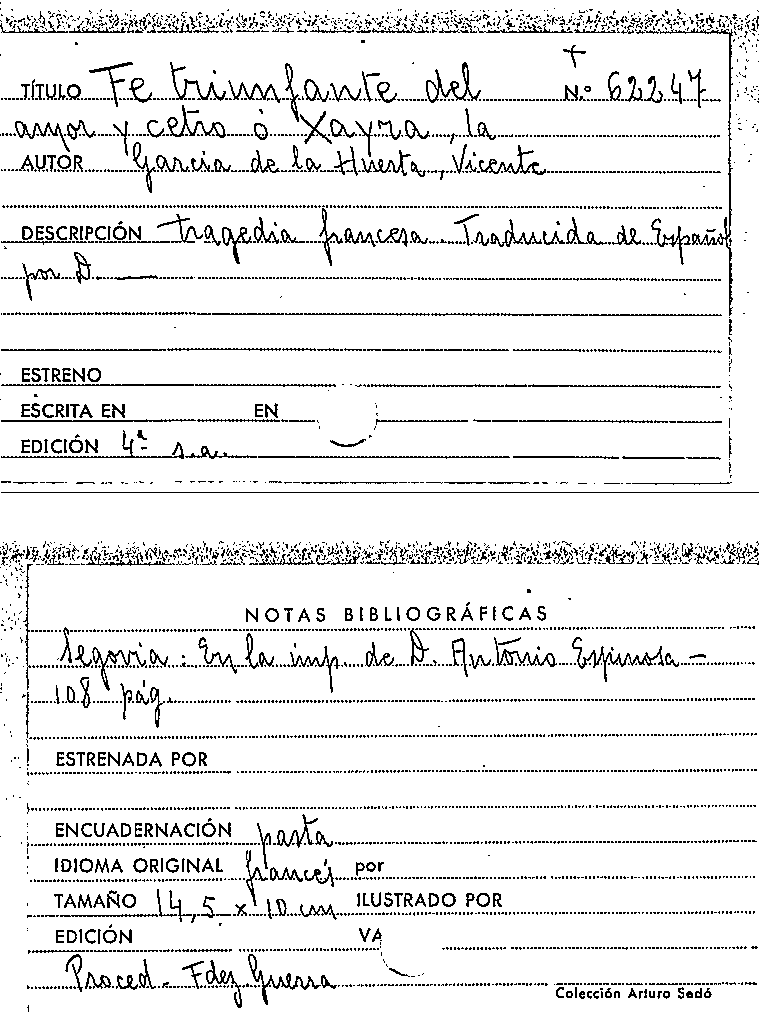 +
TÍTULO Fe triunfante del N.º 62247
amor y cetro ó Xayra, la
AUTOR Garcia de la Huerta, Vicente
DESCRIPCIÓN tragedia francesa. Traducida de Español
por D. ——
ESTRENO
ESCRITA EN EN
EDICIÓN 4ª s.a.
NOTAS BIBLIOGRÁFICAS
Segovia: En la imp. de D. Antonio Espinosa –
108 pág.
ESTRENADA POR
ENCUADERNACIÓN pasta
IDIOMA ORIGINAL francés por
TAMAÑO 14,5 x 10 cm ILUSTRADO POR
EDICIÓN VA
Proced. Fdez Guerra
Colección Arturo Sedó